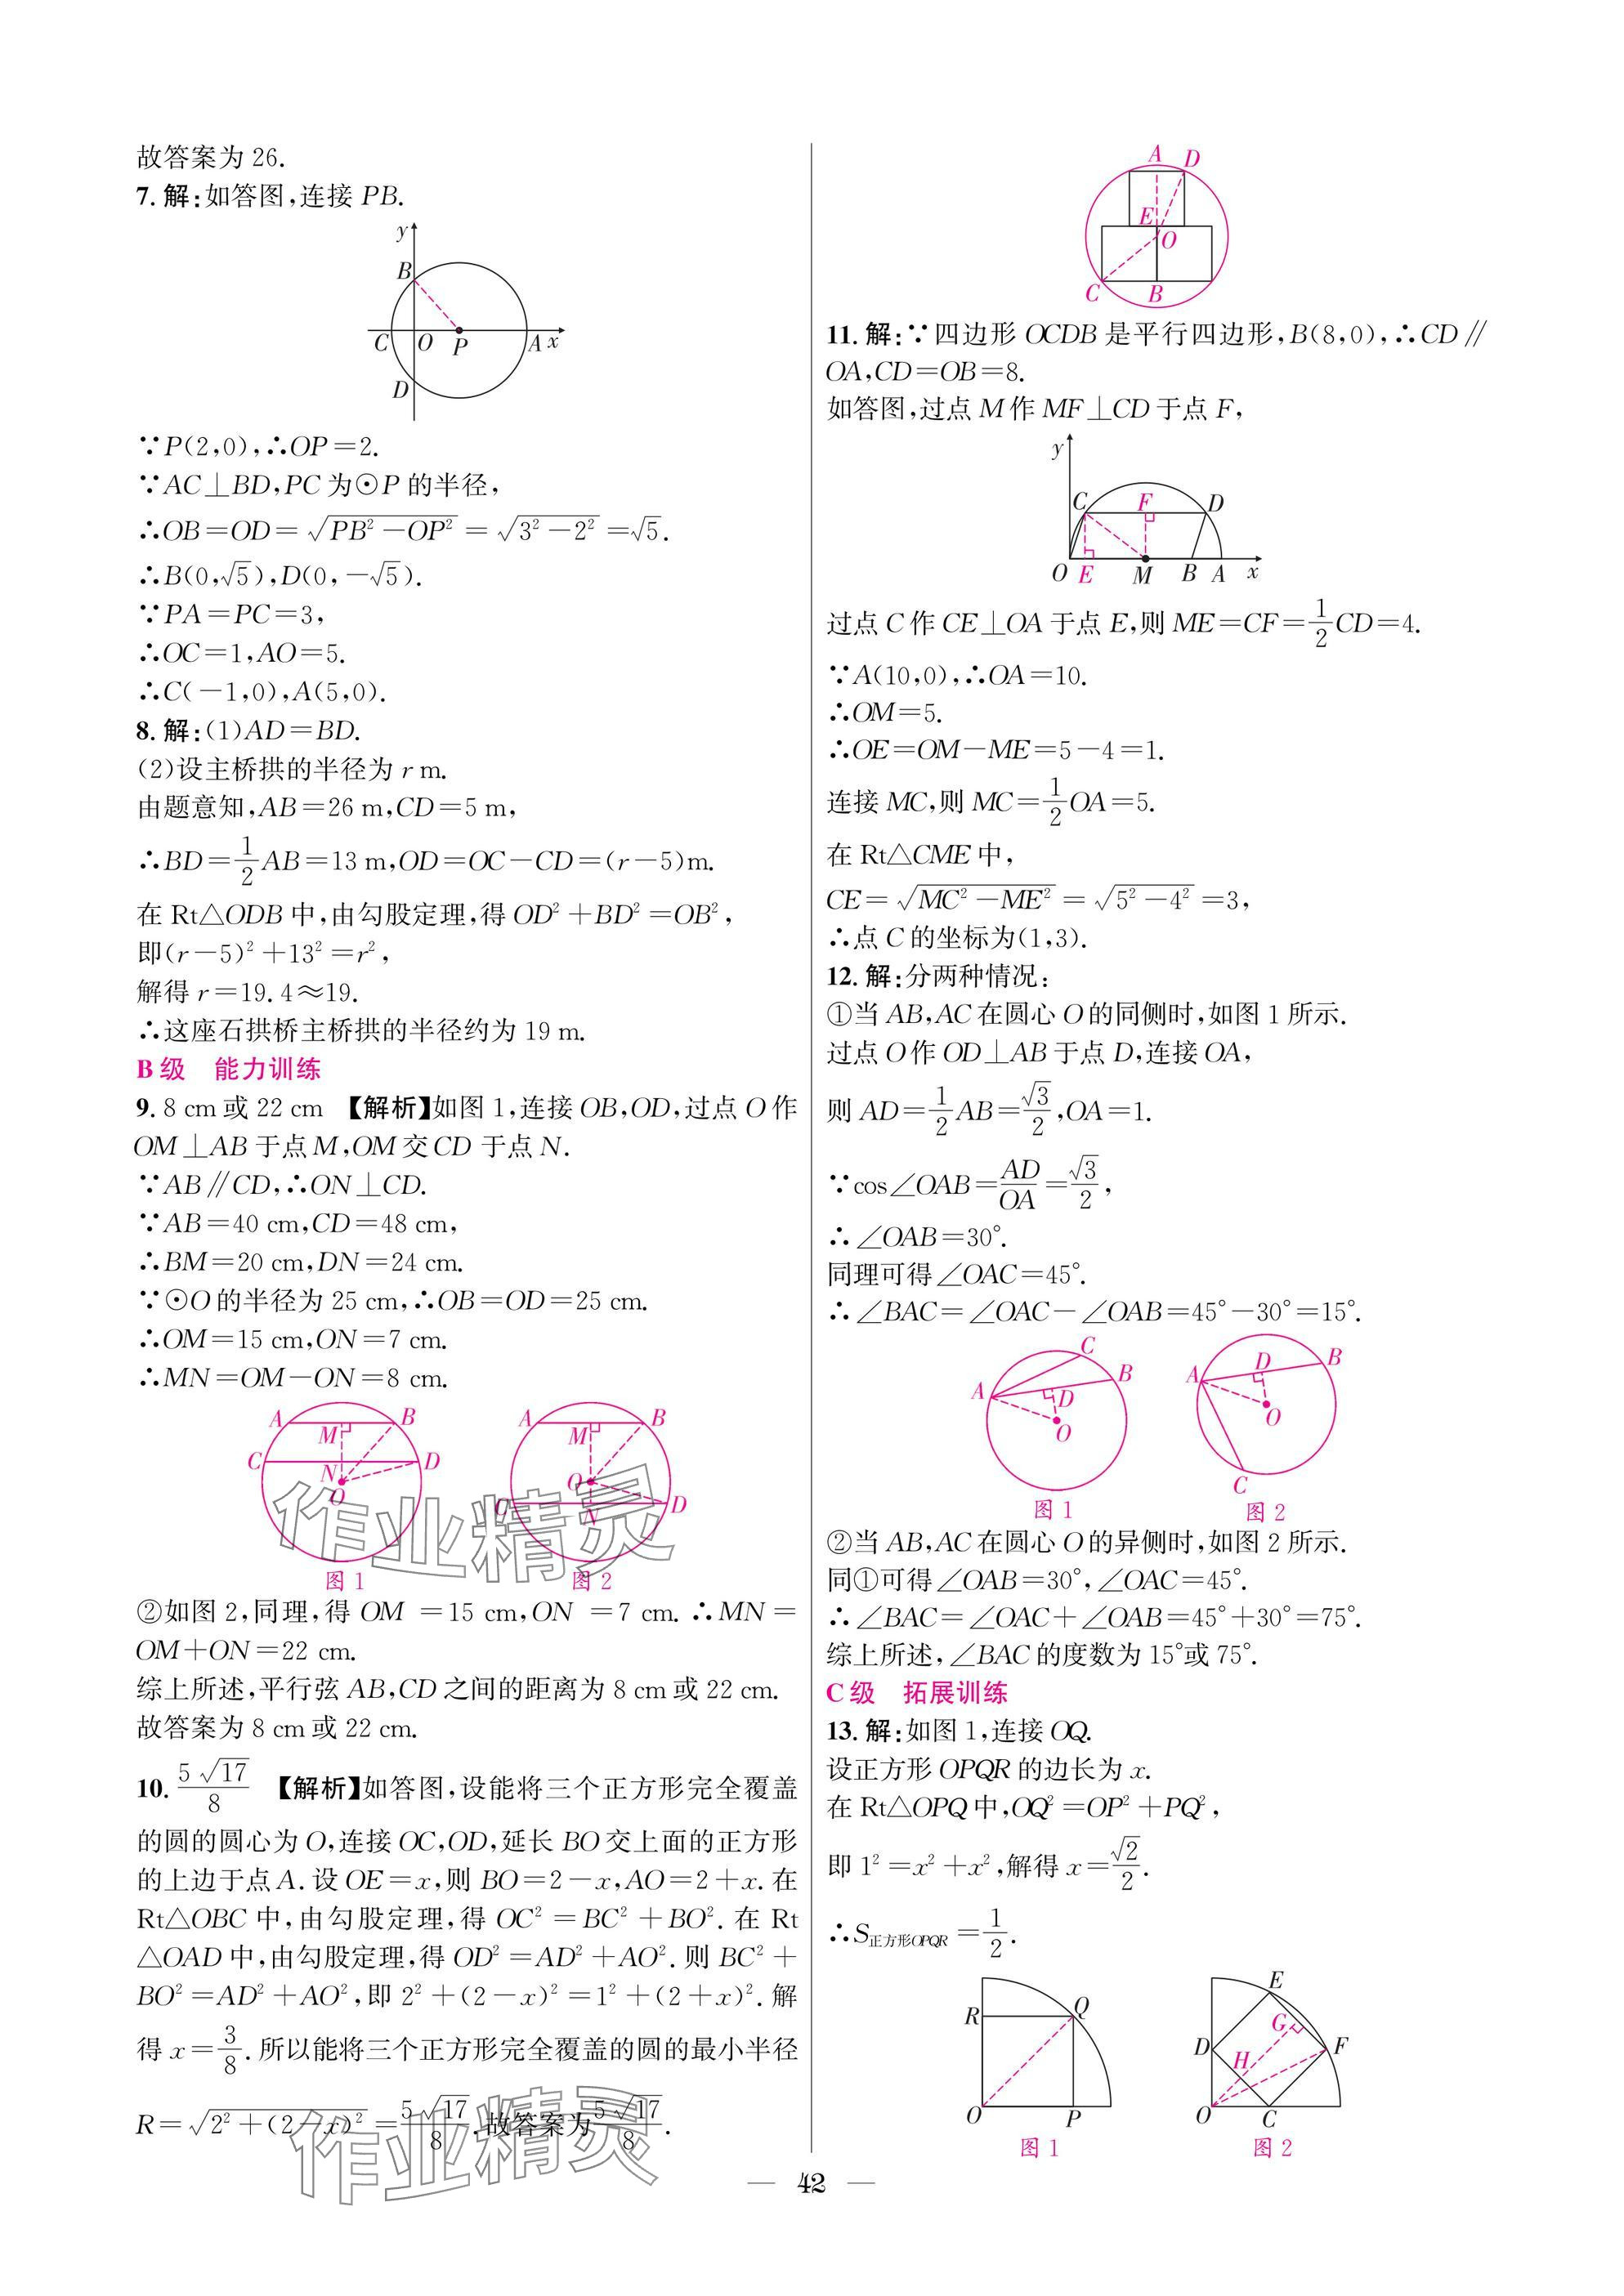 故答案为 26.
7. 解:如答图,连接 PB.
y
B
C O P A x
D
∵P(2,0),∴OP=2.
∵AC⊥BD,PC 为⊙P 的半径,
∴OB=OD=√(PB²−OP²)=√(3²−2²)=√5.
∴B(0,√5),D(0,−√5).
∵PA=PC=3,
∴OC=1,AO=5.
∴C(−1,0),A(5,0).
8. 解:(1)AD=BD.
(2)设主桥拱的半径为 r m.
由题意知,AB=26 m,CD=5 m,
∴BD=1/2 AB=13 m,OD=OC−CD=(r−5)m.
在 Rt△ODB 中,由勾股定理,得 OD²+BD²=OB²,
即(r−5)²+13²=r²,
解得 r=19.4≈19.
∴这座石拱桥主桥拱的半径约为 19 m.
B 级 能力训练
9. 8 cm 或 22 cm 【解析】如图 1,连接 OB,OD,过点 O 作
OM⊥AB 于点 M,OM 交 CD 于点 N.
∵AB∥CD,∴ON⊥CD.
∵AB=40 cm,CD=48 cm,
∴BM=20 cm,DN=24 cm.
∵⊙O 的半径为 25 cm,∴OB=OD=25 cm.
∴OM=15 cm,ON=7 cm.
∴MN=OM−ON=8 cm.
A B M C D N O
图 1
A B M O C N D
图 2
作业精灵
②如图 2,同理,得 OM=15 cm,ON=7 cm. ∴MN=
OM+ON=22 cm.
综上所述,平行弦 AB,CD 之间的距离为 8 cm 或 22 cm.
故答案为 8 cm 或 22 cm.
10. 5√17/8 【解析】如答图,设能将三个正方形完全覆盖
的圆的圆心为 O,连接 OC,OD,延长 BO 交上面的正方形
的上边于点 A. 设 OE=x,则 BO=2−x,AO=2+x. 在
Rt△OBC 中,由勾股定理,得 OC²=BC²+BO². 在 Rt
△OAD 中,由勾股定理,得 OD²=AD²+AO². 则 BC²+
BO²=AD²+AO²,即 2²+(2−x)²=1²+(2+x)². 解
得 x=3/8. 所以能将三个正方形完全覆盖的圆的最小半径
R=√(2²+(2−x)²)=5√17/8. 故答案为5√17/8.
作业精灵
A D
E
O
C B
11. 解:∵四边形 OCDB 是平行四边形,B(8,0),∴CD∥
OA,CD=OB=8.
如答图,过点 M 作 MF⊥CD 于点 F,
y
C F D
O E M B A x
过点 C 作 CE⊥OA 于点 E,则 ME=CF=1/2 CD=4.
∵A(10,0),∴OA=10.
∴OM=5.
∴OE=OM−ME=5−4=1.
连接 MC,则 MC=1/2 OA=5.
在 Rt△CME 中,
CE=√(MC²−ME²)=√(5²−4²)=3,
∴点 C 的坐标为(1,3).
12. 解:分两种情况:
①当 AB,AC 在圆心 O 的同侧时,如图 1 所示.
过点 O 作 OD⊥AB 于点 D,连接 OA,
则 AD=1/2 AB=√3/2,OA=1.
∵cos∠OAB=AD/OA=√3/2,
∴∠OAB=30°.
同理可得∠OAC=45°.
∴∠BAC=∠OAC−∠OAB=45°−30°=15°.
C B A D O
图 1
D B A O C
图 2
②当 AB,AC 在圆心 O 的异侧时,如图 2 所示.
同①可得∠OAB=30°,∠OAC=45°.
∴∠BAC=∠OAC+∠OAB=45°+30°=75°.
综上所述,∠BAC 的度数为 15°或 75°.
C 级 拓展训练
13. 解:如图 1,连接 OQ.
设正方形 OPQR 的边长为 x.
在 Rt△OPQ 中,OQ²=OP²+PQ²,
即 1²=x²+x²,解得 x=√2/2.
∴S正方形OPQR=1/2.
R Q O P
图 1
E G D F H O C
图 2
— 42 —